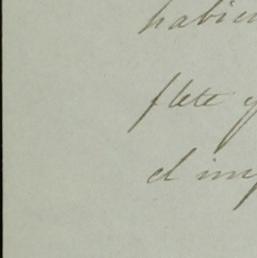 habien
flete y
el imp